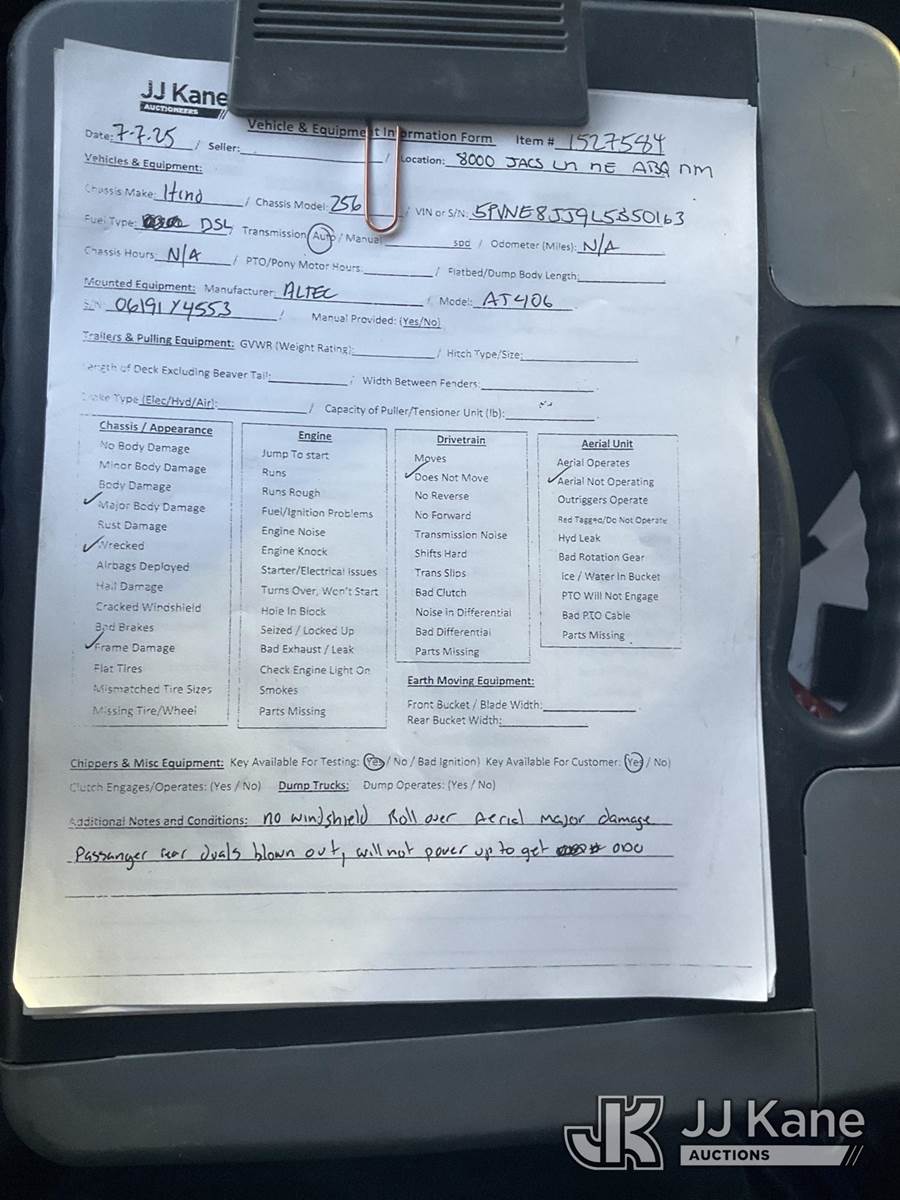 JJ Kane
AUCTIONEERS
Vehicle & Equipment Information Form Item # 1527584
Date: 7-7-25 / Seller: / Location: 8000 JACS Ln NE ABQ NM
Vehicles & Equipment:
Chassis Make: Hino / Chassis Model: 256 / VIN or S/N: 5PVNE8JJ9L5S50163
Fuel Type: DSL / Transmission (Auto / Manual spd / Odometer (Miles): N/A
Chassis Hours: N/A / PTO/Pony Motor Hours: / Flatbed/Dump Body Length:
Mounted Equipment: Manufacturer: ALTEC / Model: AT40G
S/N: 0619IY4553 / Manual Provided: (Yes/No)
Trailers & Pulling Equipment: GVWR (Weight Rating): / Hitch Type/Size:
Length of Deck Excluding Beaver Tail: / Width Between Fenders:
Brake Type (Elec/Hyd/Air): / Capacity of Puller/Tensioner Unit (lb):
Chassis / Appearance
No Body Damage
Minor Body Damage
Body Damage
✓ Major Body Damage
Rust Damage
✓ Wrecked
Airbags Deployed
Hail Damage
Cracked Windshield
Bad Brakes
✓ Frame Damage
Flat Tires
Mismatched Tire Sizes
Missing Tire/Wheel
Engine
Jump To start
Runs
Runs Rough
Fuel/Ignition Problems
Engine Noise
Engine Knock
Starter/Electrical Issues
Turns Over, Won't Start
Hole In Block
Seized / Locked Up
Bad Exhaust / Leak
Check Engine Light On
Smokes
Parts Missing
Drivetrain
Moves
✓ Does Not Move
No Reverse
No Forward
Transmission Noise
Shifts Hard
Trans Slips
Bad Clutch
Noise in Differential
Bad Differential
Parts Missing
Aerial Unit
Aerial Operates
✓ Aerial Not Operating
Outriggers Operate
Red Tagged/Do Not Operate
Hyd Leak
Bad Rotation Gear
Ice / Water In Bucket
PTO Will Not Engage
Bad PTO Cable
Parts Missing
Earth Moving Equipment:
Front Bucket / Blade Width:
Rear Bucket Width:
Chippers & Misc Equipment: Key Available For Testing: (Yes / No / Bad Ignition) Key Available For Customer: (Yes / No)
Clutch Engages/Operates: (Yes / No) Dump Trucks: Dump Operates: (Yes / No)
Additional Notes and Conditions: no windshield Roll over Aerial major damage
Passanger rear duals blown out, will not power up to get ODO
JK JJ Kane
AUCTIONS